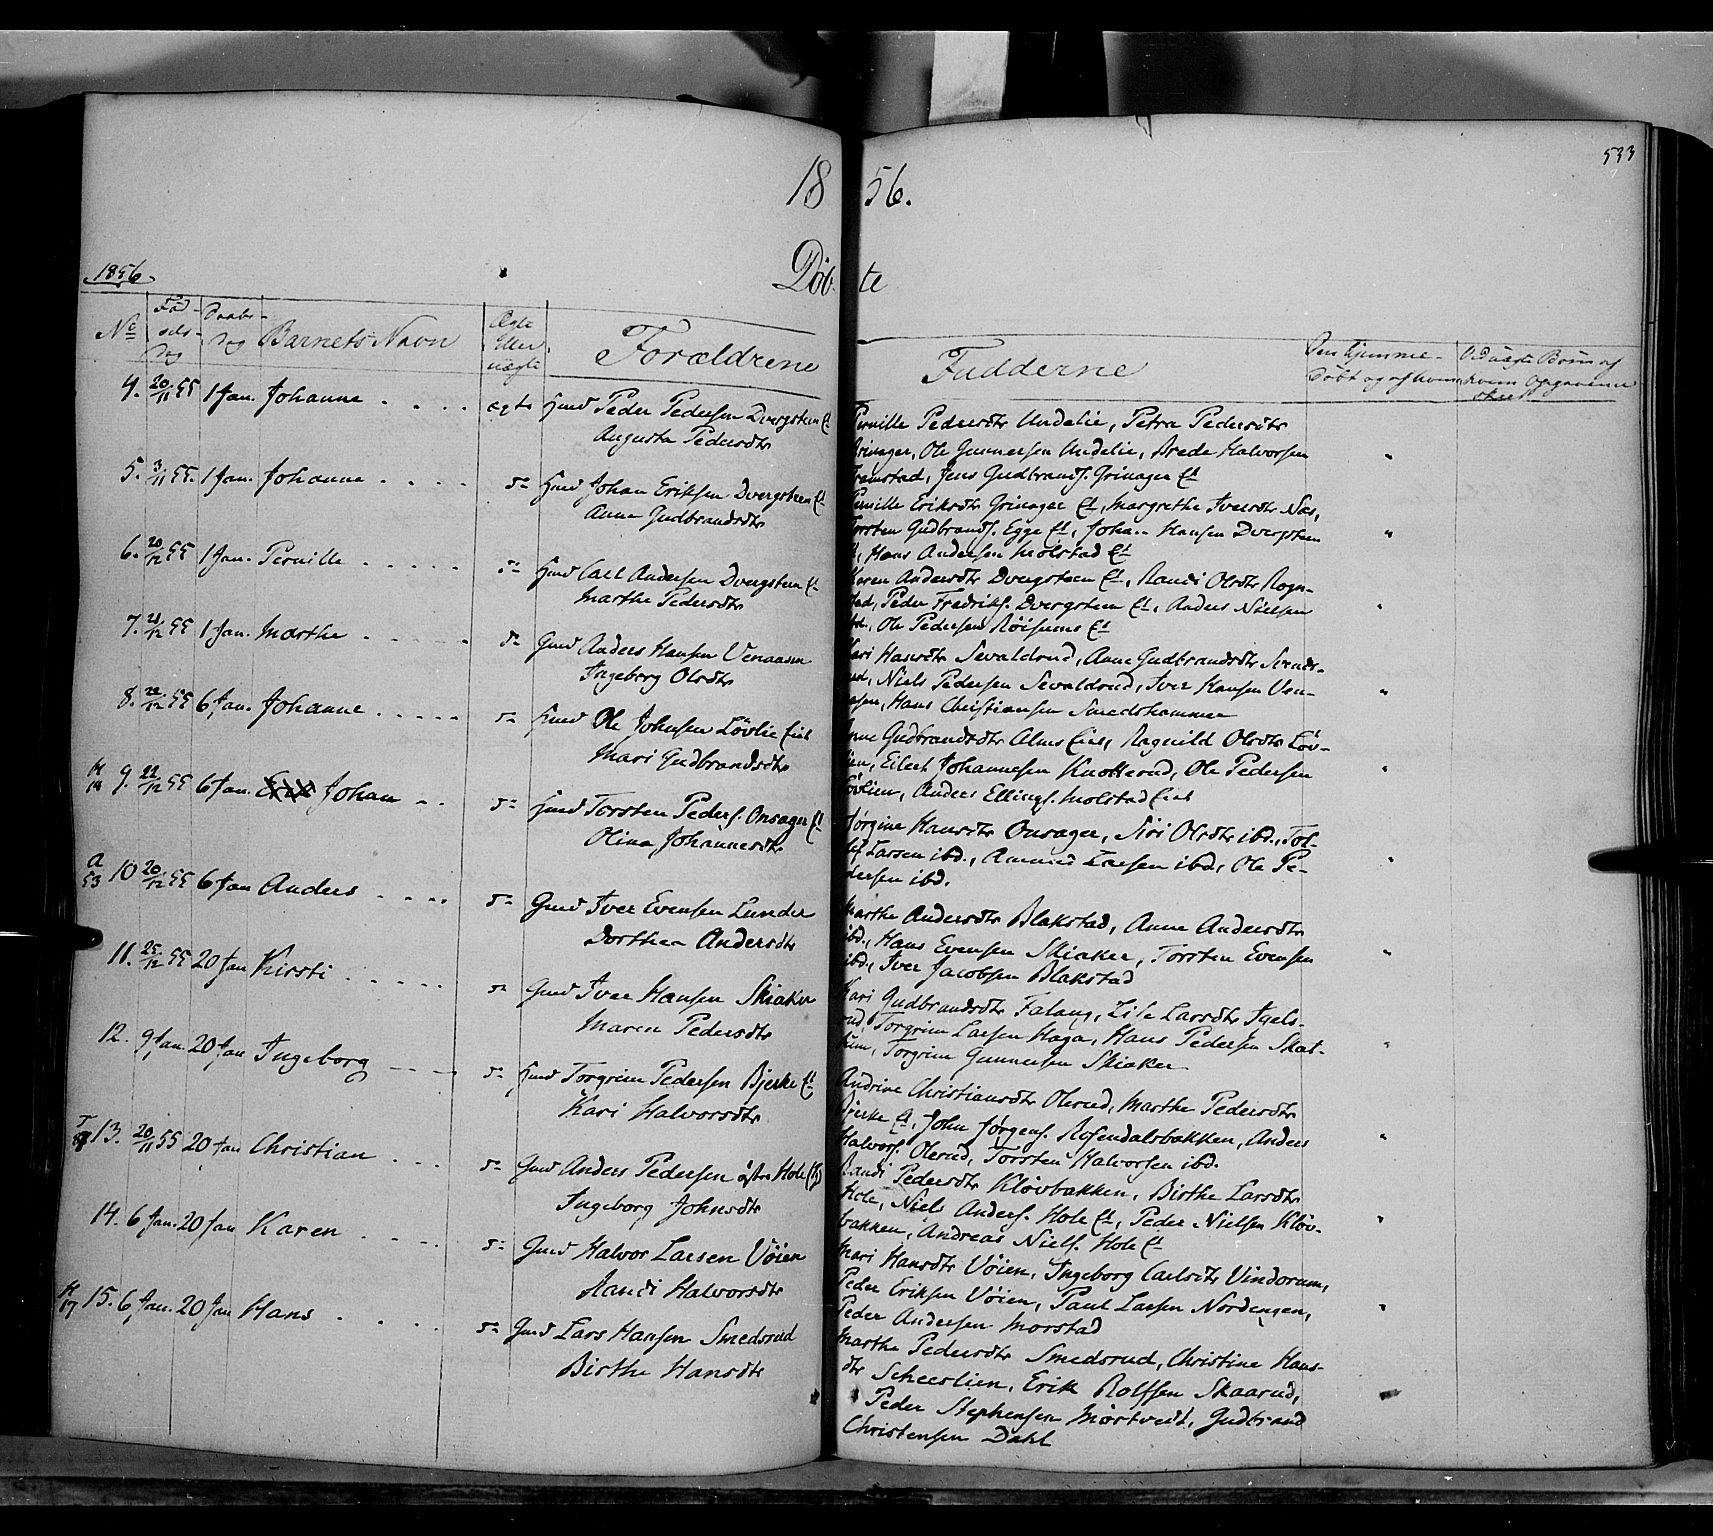 533
18 56.
1856.
Döb te
No
Fød-
sels-
Dag
Daabs-
Dag
Barnets Navn
Ægte
Eller
uægte
Forældrene
Fadderne
Om hjemme-
døbt og af hvem
Ved uægte Børn af
hvem Opgavenen
skeet
4. 20/11 55 1 Jan. Johanne . . . . ægte Huusm Peder Pedersen Dvergsteen Et
Augusta Pedersdtr
Pernille Pedersdtr Undelie, Petra Pedersdtr
Grinager, Ole Gunnersen Undelie, Brede Halvorsen
Framstad, Jens Gudbrands. Grinager Et
5. 3/11 55. 1 Jan. Johanne . . . . Do Huusm Johan Eriksen Dvergsteen Et
Anne Gudbrandsdtr
Pernille Eriksdtr Grinager Et, Margrethe Iversdtr Næs,
Torsten Gudbrands. Egge Et, Johan Hansen Dvergsteen
Et, Hans Andersen Molstad Et
6. 20/12 55 1 Jan. Pernille . . . . . Do Huusm Carl Andersen Dvergsteen Et
Marthe Pedersdtr
Karen Andersdtr Dvergsteen Et, Randi Olsdtr Rogn-
stad, Peder Fredriks. Dvergsteen Et, Anders Nielsen
ibd., Ole Pedersen Røisums Et
7. 21/12 55 1 Jan. Marthe . . . . . Do Gmd Anders Hansen Venaasen
Ingeborg Olsdtr
Kari Hansdtr Sevaldrud, Anne Gudbrandsdtr
Niels Pedersen Sevaldrud, Iver Hansen Ven-
aasen, Hans Christiansen Smedshammer
8. 22/12 55 6 Jan. Johanne . . . . . Do Huusm Ole Johnsen Løvlie Eiet
Mari Gudbrandsdtr
Anne Gudbrandsdtr Alms Eiet, Ragnild Olsdtr Løv-
lien, Eilert Johannesen Knotterud, Ole Pedersen
Løvlien, Anders Ellings. Molstad Eiet
9. 22/12 55 6 Jan. Johan . . Do Huusm Torsten Peders. Onsager Et
Olina Johannesdtr
Jørgine Hansdtr Onsager, Siri Olsdtr ibd., Tol-
lef Larsen ibd., Amund Larsen ibd., Ole Pe-
dersen ibd.
10 20/12 55 6 Jan Anders . . . . Do Gmd Iver Evensen Lunder
Dorthea Andersdtr
Marthe Andersdtr Blakstad, Anne Andersdtr
ibd., Hans Evensen Skiaker, Torsten Evensen
ibd., Iver Jacobsen Blakstad
11. 25/12 55 20 Jan Kirsti . . . . . Do Gmd Iver Hansen Skiaker
Maren Pedersdtr
Kari Gudbrandsdtr Falang, Lise Larsdtr Igels-
rud, Torgrim Larsen Haga, Hans Pedersen Skat-
tum, Torgrim Gunnersen Skiaker
12. 9 Jan. 20 Jan Ingeborg . . . . Do Huusm Torgrim Pedersen Bjerke Et
Kari Halvorsdtr
Andrine Christiansdtr Olerud, Marthe Pedersdtr
Bjerke Et, John Jørgens. Rosendalsbakken, Anders
Halvors. Olerud, Torsten Halvorsen ibd.
13. 20/11 55 20 Jan Christian . . . Do Gmd Anders Pedersen østre Hole
Ingeborg Johnsdtr
Randi Pedersdtr Kløvbakken, Birthe Larsdtr
Hole, Niels Anders. Hole Et, Peder Nielsen Kløv-
bakken, Andreas Niels. Hole Et
14. 6 Jan. 20 Jan Karen . . . . . Do Gmd Halvor Larsen Vøien
Randi Halvorsdtr
Mari Hansdtr Vøien, Ingeborg Carlsdtr Vindorum,
Peder Eriksen Vøien, Paul Larsen Nordengen,
Peder Andersen Morstad
15. 6 Jan. 20 Jan Hans . . . . Do Gmd Lars Hansen Smedsrud
Birthe Hansdtr
Marthe Pedersdtr Smedsrud, Christine Hans-
dtr Scheerlien, Erik Rolfsen Skaarud,
Peder Stephensen Mørtvedt, Gudbrand
Christensen Dahl